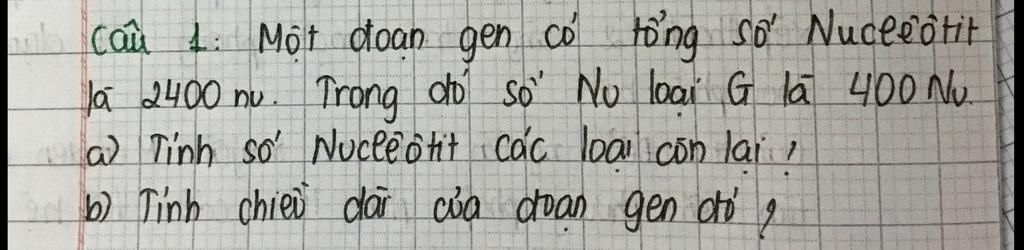 Câu 1: Một đoạn gen có tổng số Nuclêôtit
là 2400 nu. Trong đó số Nu loại G là 400 Nu.
a) Tính số Nuclêôtit các loại còn lại?
b) Tính chiều dài của đoạn gen đó?